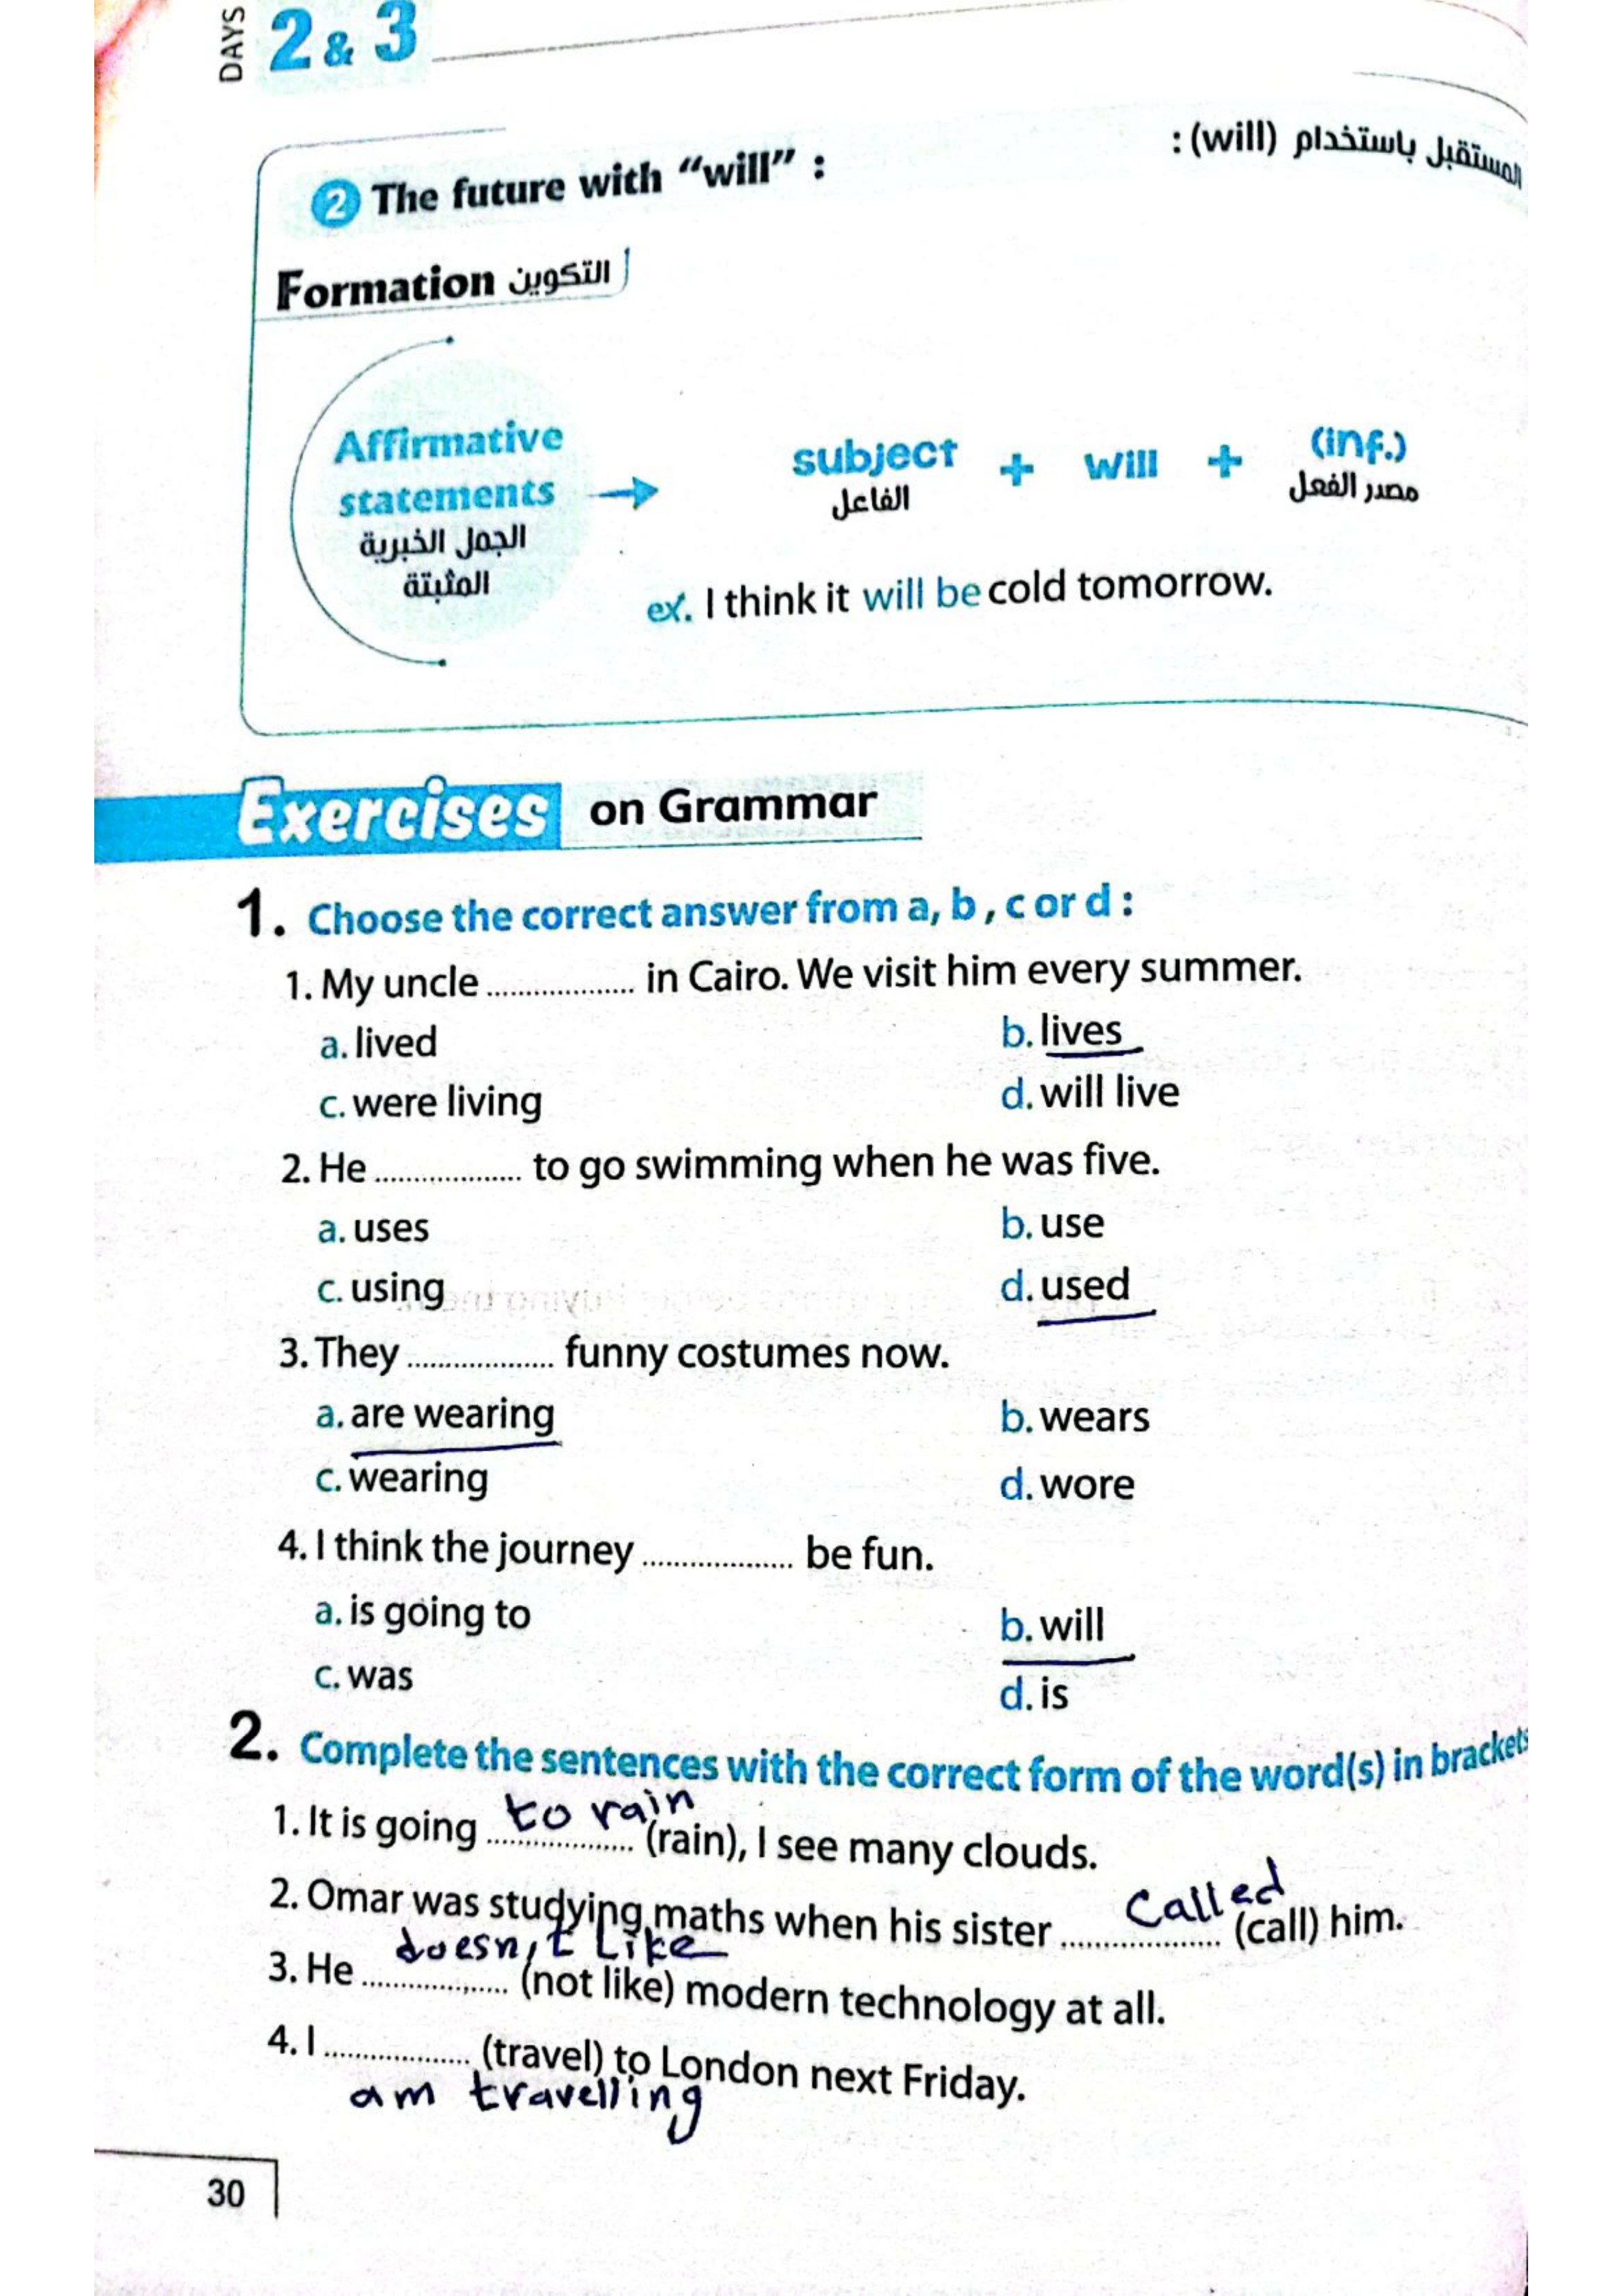 DAYS 2 & 3
المستقبل باستخدام (will) :
2 The future with “will” :
Formation التكوين
Affirmative
statements
الجمل الخبرية
المثبتة
subject + will + (inf.)
الفاعل مصدر الفعل
ex. I think it will be cold tomorrow.
Exercises on Grammar
1. Choose the correct answer from a, b , c or d :
1. My uncle .................. in Cairo. We visit him every summer.
a. lived b. lives
c. were living d. will live
2. He .................. to go swimming when he was five.
a. uses b. use
c. using d. used
3. They .................. funny costumes now.
a. are wearing b. wears
c. wearing d. wore
4. I think the journey .................. be fun.
a. is going to b. will
c. was d. is
2. Complete the sentences with the correct form of the word(s) in brackets
1. It is going to rain (rain), I see many clouds.
2. Omar was studying maths when his sister called (call) him.
3. He doesn't like (not like) modern technology at all.
4. I .................. (travel) to London next Friday.
am travelling
30